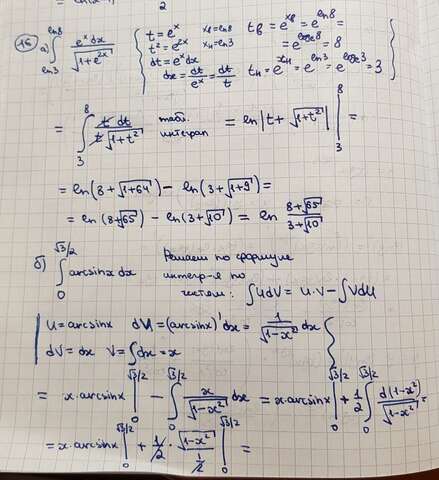 16 а) ∫_{ln3}^{ln8} e^x dx / √(1+e^{2x}) { t = e^x x_в = ln8 t_в = e^{x_в} = e^{ln8} =
t² = e^{2x} x_н = ln3 = e^{log_e 8} = 8
dt = e^x dx
dx = dt/e^x = dt/t t_н = e^{x_н} = e^{ln3} = e^{log_e 3} = 3 }
= ∫_3^8 t dt / t√(1+t²) табл. интеграл = ln|t + √(1+t²)| |_3^8 =
= ln(8+√(1+64)) − ln(3+√(1+9)) =
= ln(8+√65) − ln(3+√10) = ln (8+√65)/(3+√10)
б) ∫_0^{√3/2} arcsinx dx Решаем по формуле
интегр-я по
частям: ∫UdV = U·V − ∫VdU
U = arcsinx dU = (arcsinx)' dx = 1/√(1−x²) dx
dV = dx V = ∫dx = x
= x·arcsinx |_0^{√3/2} − ∫_0^{√3/2} x/√(1−x²) dx = x·arcsinx |_0^{√3/2} + 1/2 ∫_0^{√3/2} d(1−x²)/√(1−x²) =
= x·arcsinx |_0^{√3/2} + 1/2 · √(1−x²) / (1/2) |_0^{√3/2} =